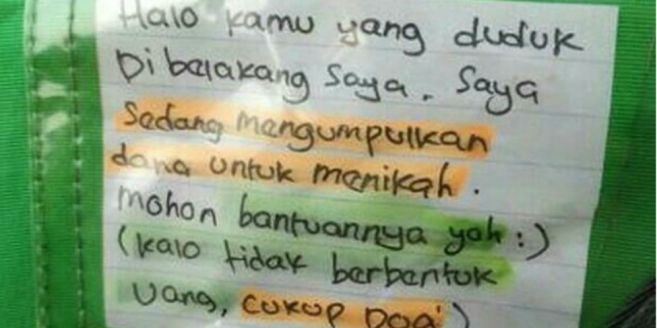 Halo kamu yang duduk
Dibelakang saya. Saya
Sedang mengumpulkan
dana untuk menikah.
mohon bantuannya yah :)
(kalo tidak berbentuk
Uang, cukup Doa')